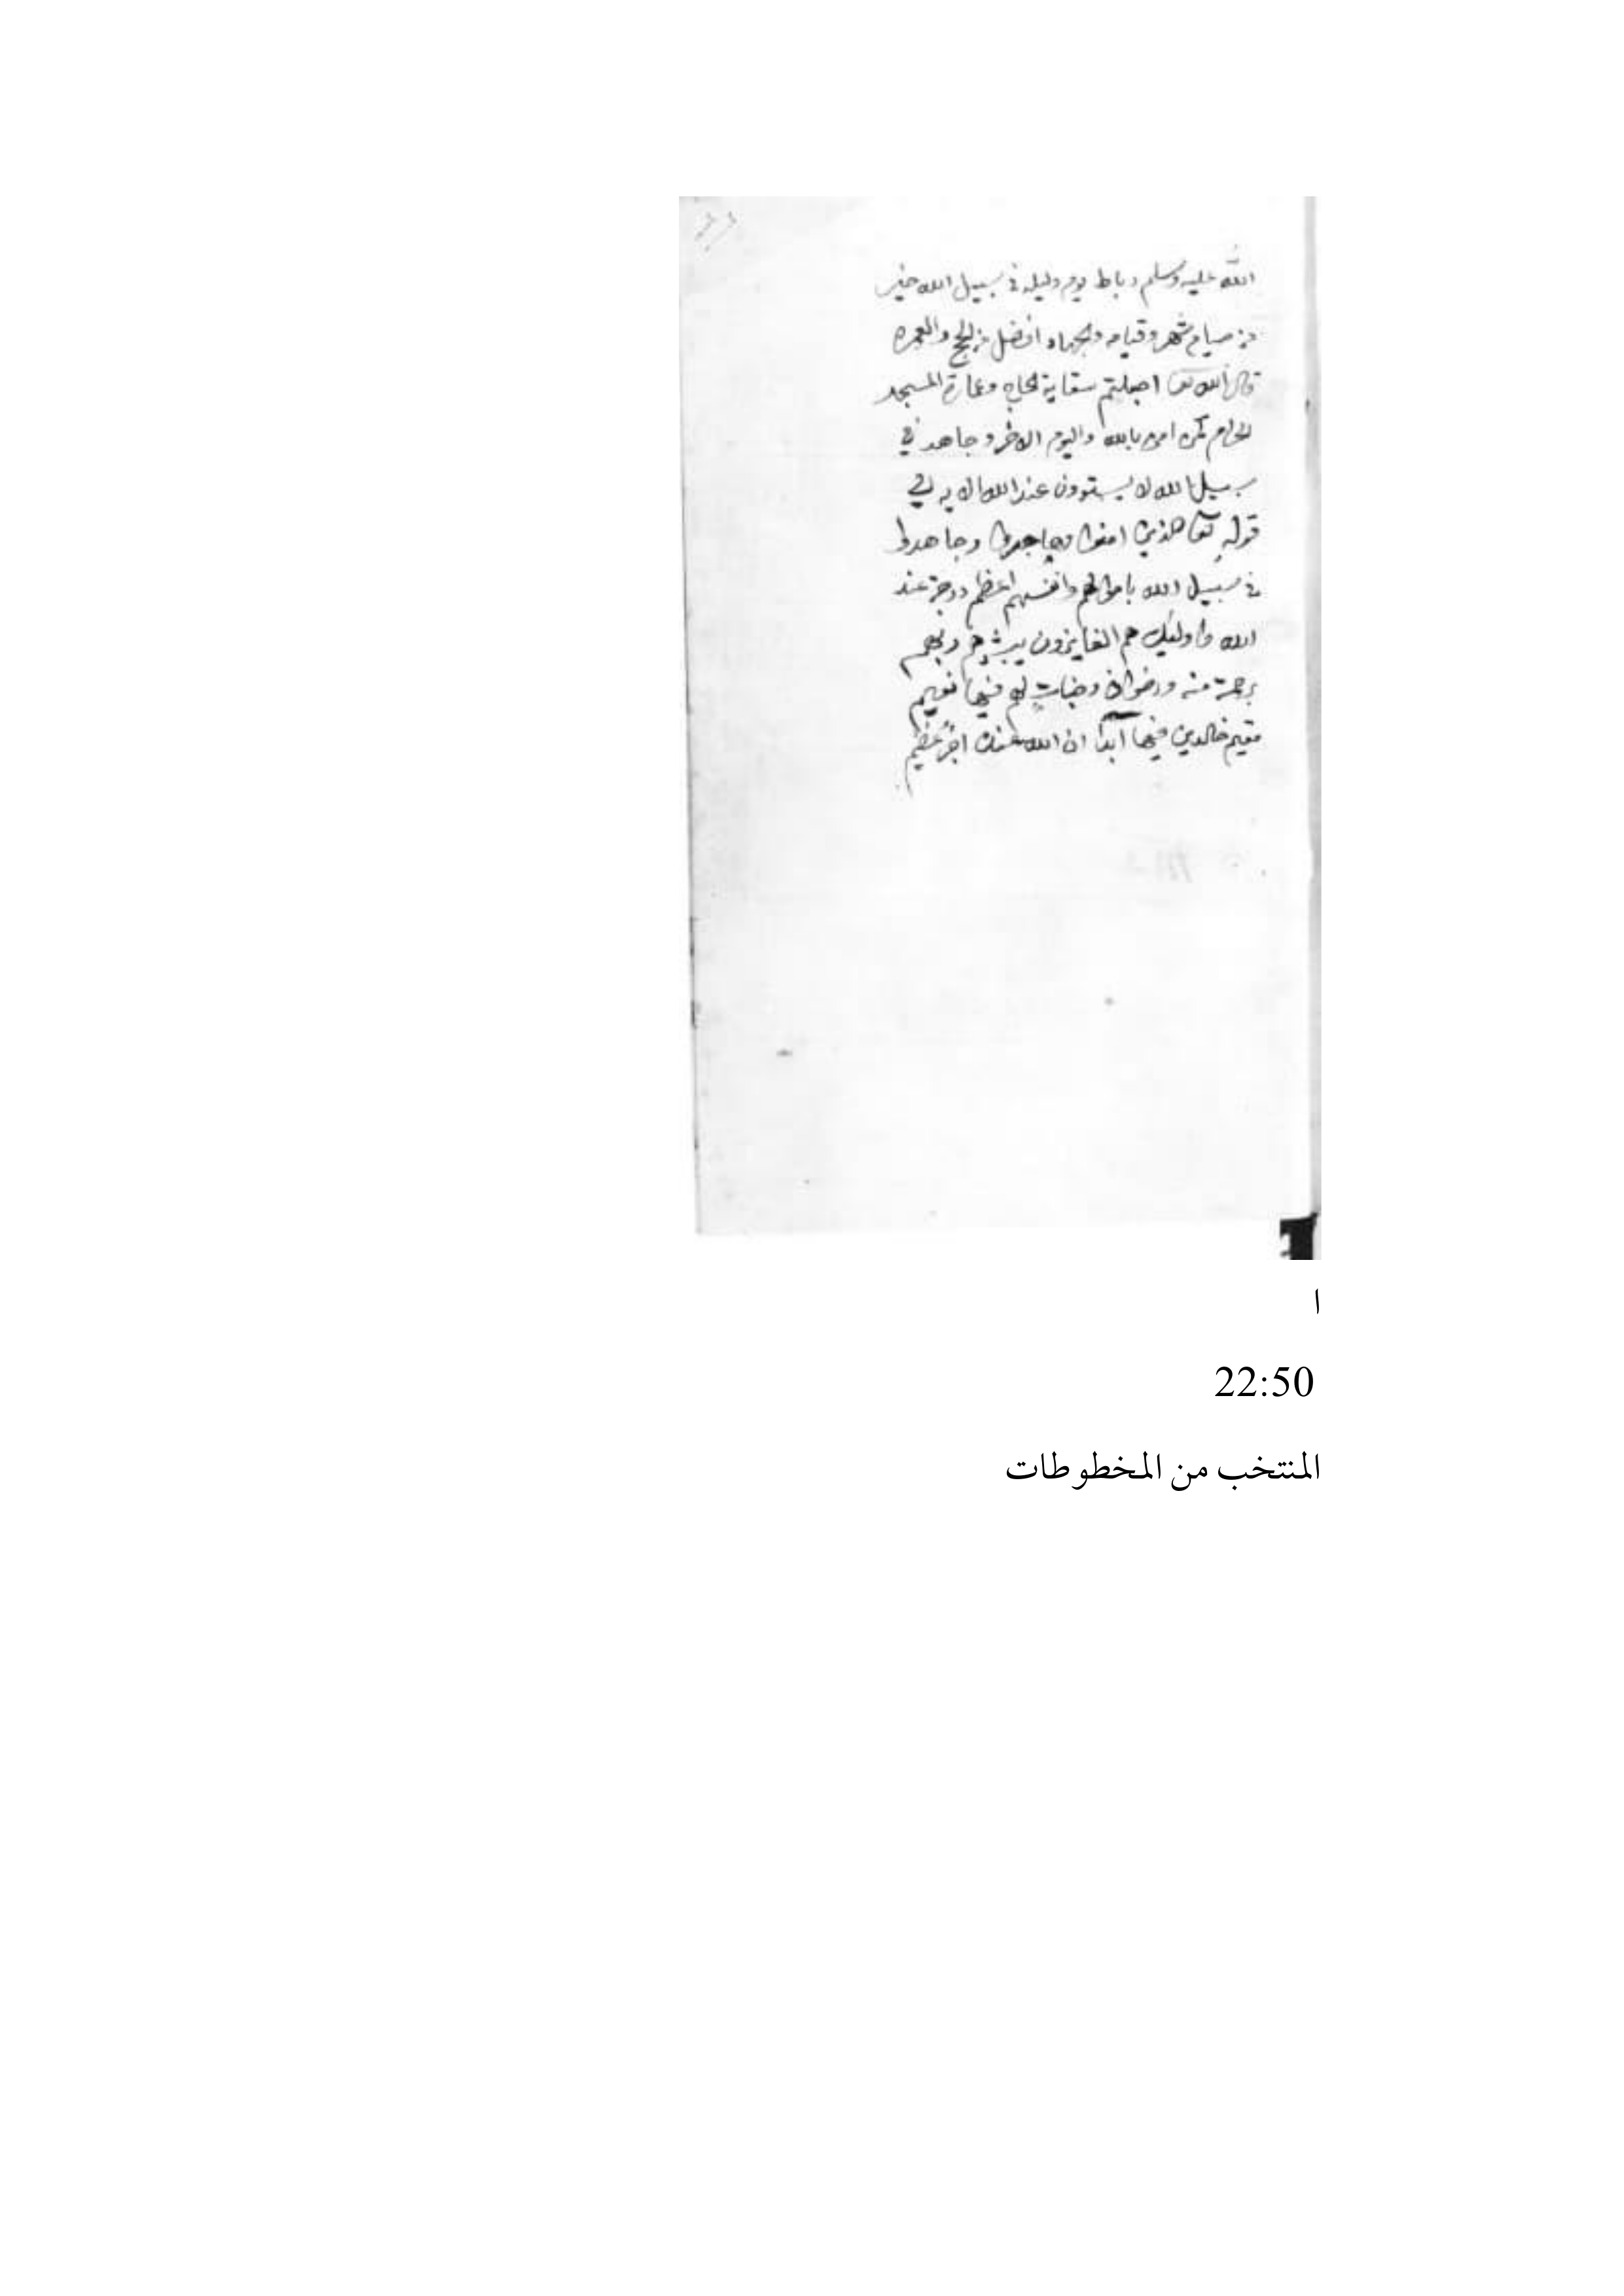 الله عليه وسلم رباط يوم وليله في سبيل الله خير
من صيام شهر وقيامه والجهاد افضل من الحج والعمره
قال الله تعا اجعلتم سقاية الحاج وعمارة المسجد
الحرام كمن امن بالله واليوم الاخر وجاهد في
سبيل الله لا يستوون عند الله الايه الي
قوله تعا الذين امنوا وهاجروا وجاهدوا
في سبيل الله باموالهم وانفسهم اعظم درجة عند
الله واوليك هم الفايزون يبشرهم ربهم
برحمة منه ورضوان وجنات لهم فيها نعيم
مقيم خالدين فيها ابدا ان الله عنده اجر عظيم
ا
22:50
المنتخب من المخطوطات